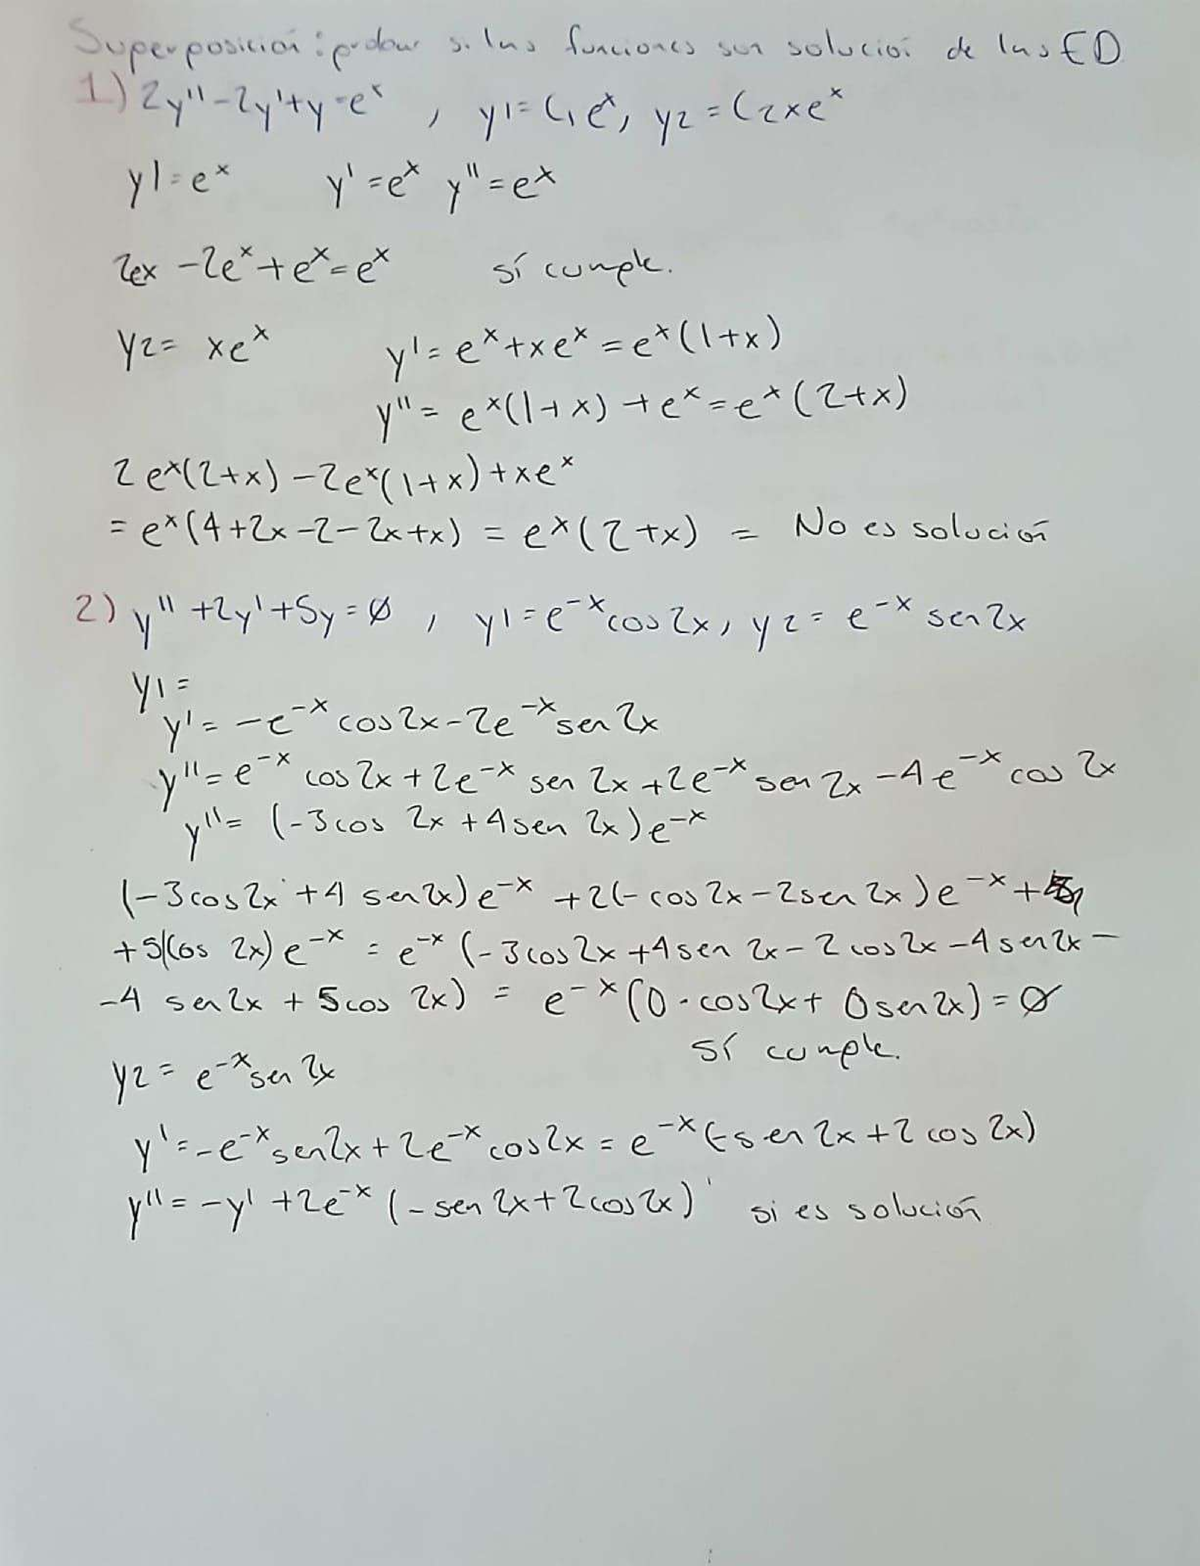 Superposición: probar si las funciones son solución de las ED
1) 2y'' - 2y' + y = eˣ , y1 = C₁eˣ, y2 = C2xeˣ
y1 = eˣ y' = eˣ y'' = eˣ
2ex - 2eˣ + eˣ = eˣ sí cumple.
y2 = xeˣ y' = eˣ + xeˣ = eˣ(1+x)
y'' = eˣ(1+x) + eˣ = eˣ(2+x)
2eˣ(2+x) - 2eˣ(1+x) + xeˣ
= eˣ(4+2x-2-2x+x) = eˣ(2+x) = No es solución
2) y'' + 2y' + 5y = ∅ , y1 = e⁻ˣcos2x, y2 = e⁻ˣ sen2x
y1 =
y' = -e⁻ˣ cos2x - 2e⁻ˣsen2x
y'' = e⁻ˣ cos2x + 2e⁻ˣ sen 2x + 2e⁻ˣ sen 2x - 4e⁻ˣ cos 2x
y'' = (-3cos 2x + 4sen 2x)e⁻ˣ
(-3cos2x + 4 sen2x)e⁻ˣ + 2(-cos2x - 2sen2x)e⁻ˣ +
+5(cos 2x)e⁻ˣ = e⁻ˣ(-3cos2x + 4sen 2x - 2cos2x - 4sen2x -
-4 sen2x + 5cos 2x) = e⁻ˣ(0·cos2x + 0sen2x) = ∅
sí cumple.
y2 = e⁻ˣsen 2x
y' = -e⁻ˣsen2x + 2e⁻ˣcos2x = e⁻ˣ(-sen2x + 2cos2x)
y'' = -y' + 2e⁻ˣ(-sen2x + 2cos2x) si es solución